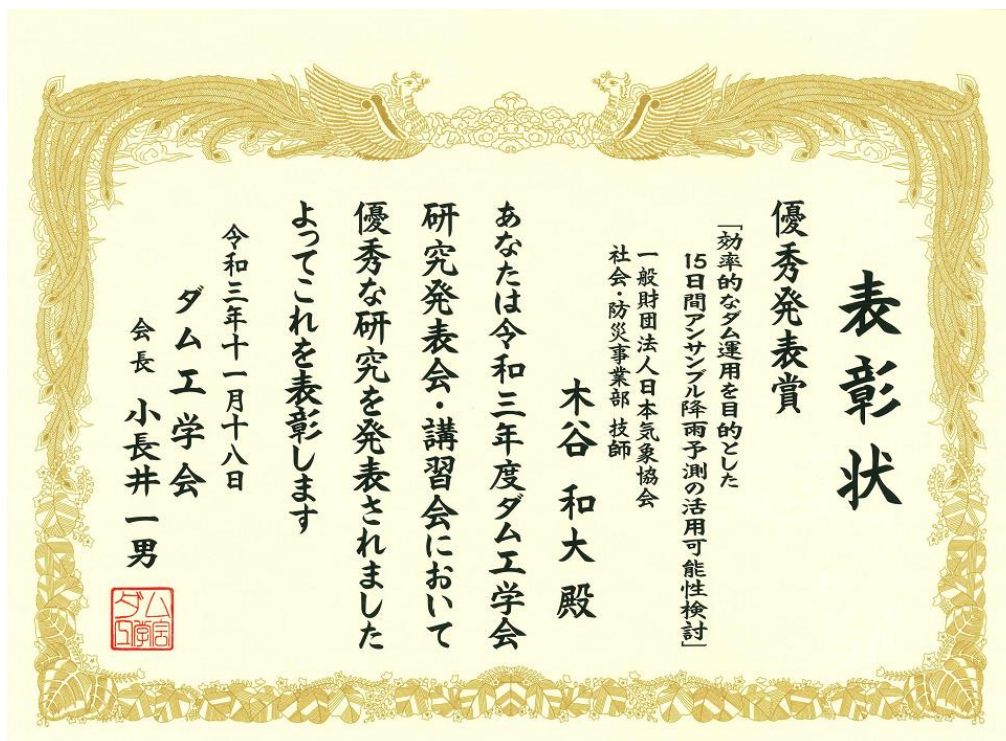 表彰状
優秀発表賞
「効率的なダム運用を目的とした
15日間アンサンブル降雨予測の活用可能性検討」
一般財団法人日本気象協会
社会・防災事業部 技師
木谷 和大 殿
あなたは令和三年度ダム工学会
研究発表会・講習会において
優秀な研究を発表されました
よってこれを表彰します
令和三年十一月十八日
ダム工学会
会長 小長井 一男
ダム
工学会